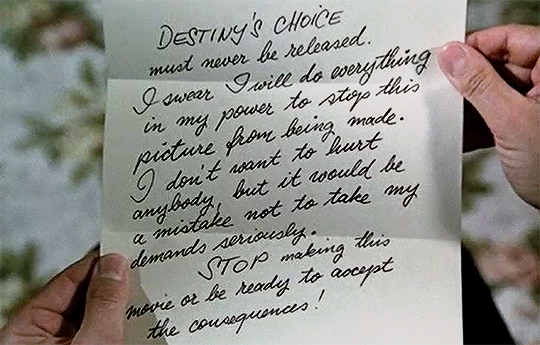 DESTINY'S CHOICE
must never be released.
I swear I will do everything
in my power to stop this
picture from being made.
I don't want to hurt
anybody, but it would be
a mistake not to take my
demands seriously.
STOP making this
movie or be ready to accept
the consequences!